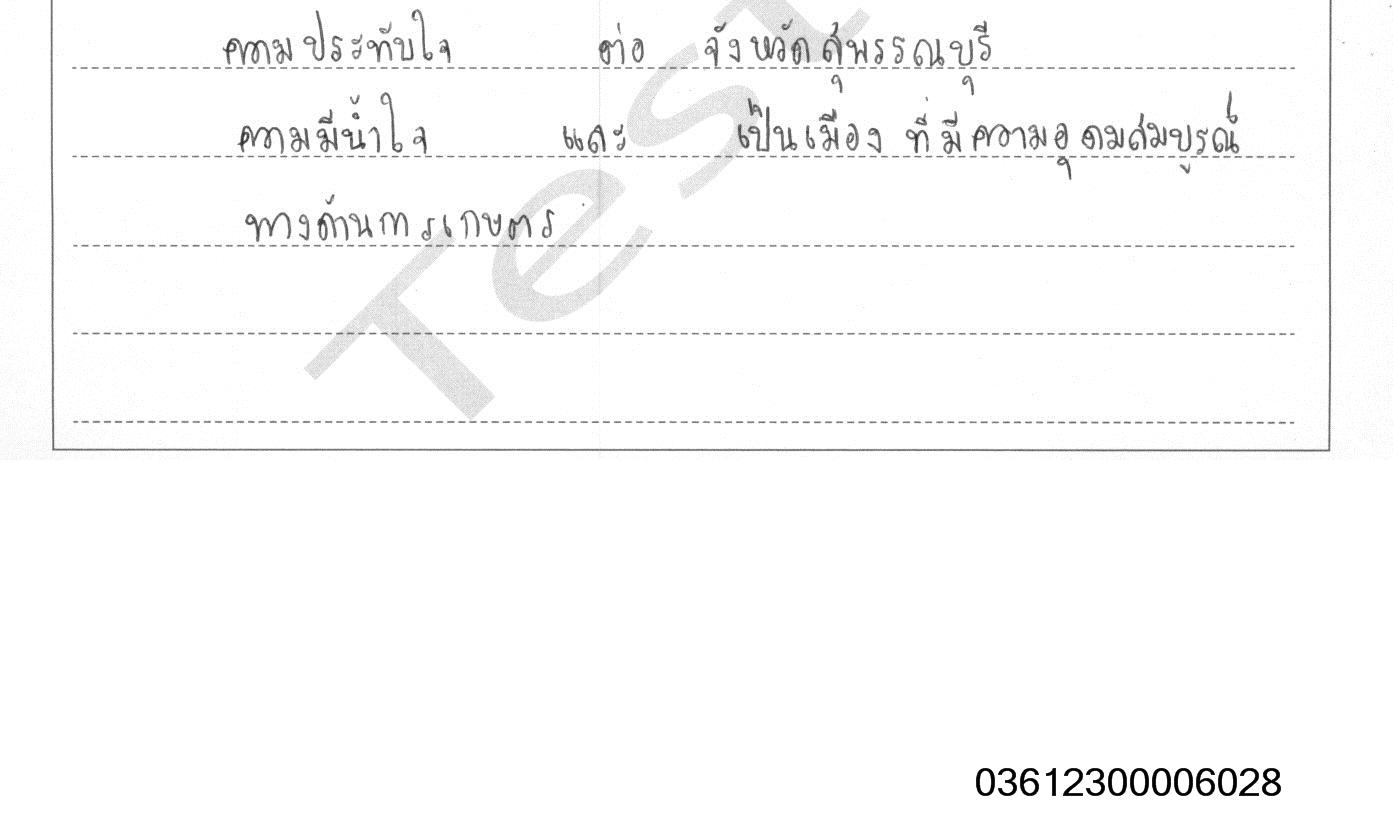 ความประทับใจ ต่อ จังหวัดสุพรรณบุรี
ความมีน้ำใจ และ เป็นเมือง ที่มีความอุดมสมบูรณ์
ทางด้านการเกษตร
Test
03612300006028